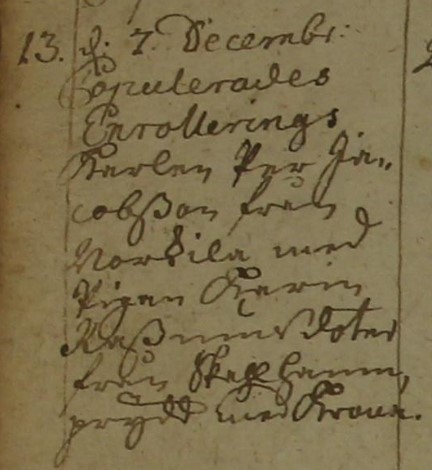 13. d. 7. Decembr:
Copulerades
Enrollerings
Karlen Per Ja„
cobßon från
Norkila med
Pigan Karin
Raßmusdoter
från Skepshamn,
prydd med Krona.